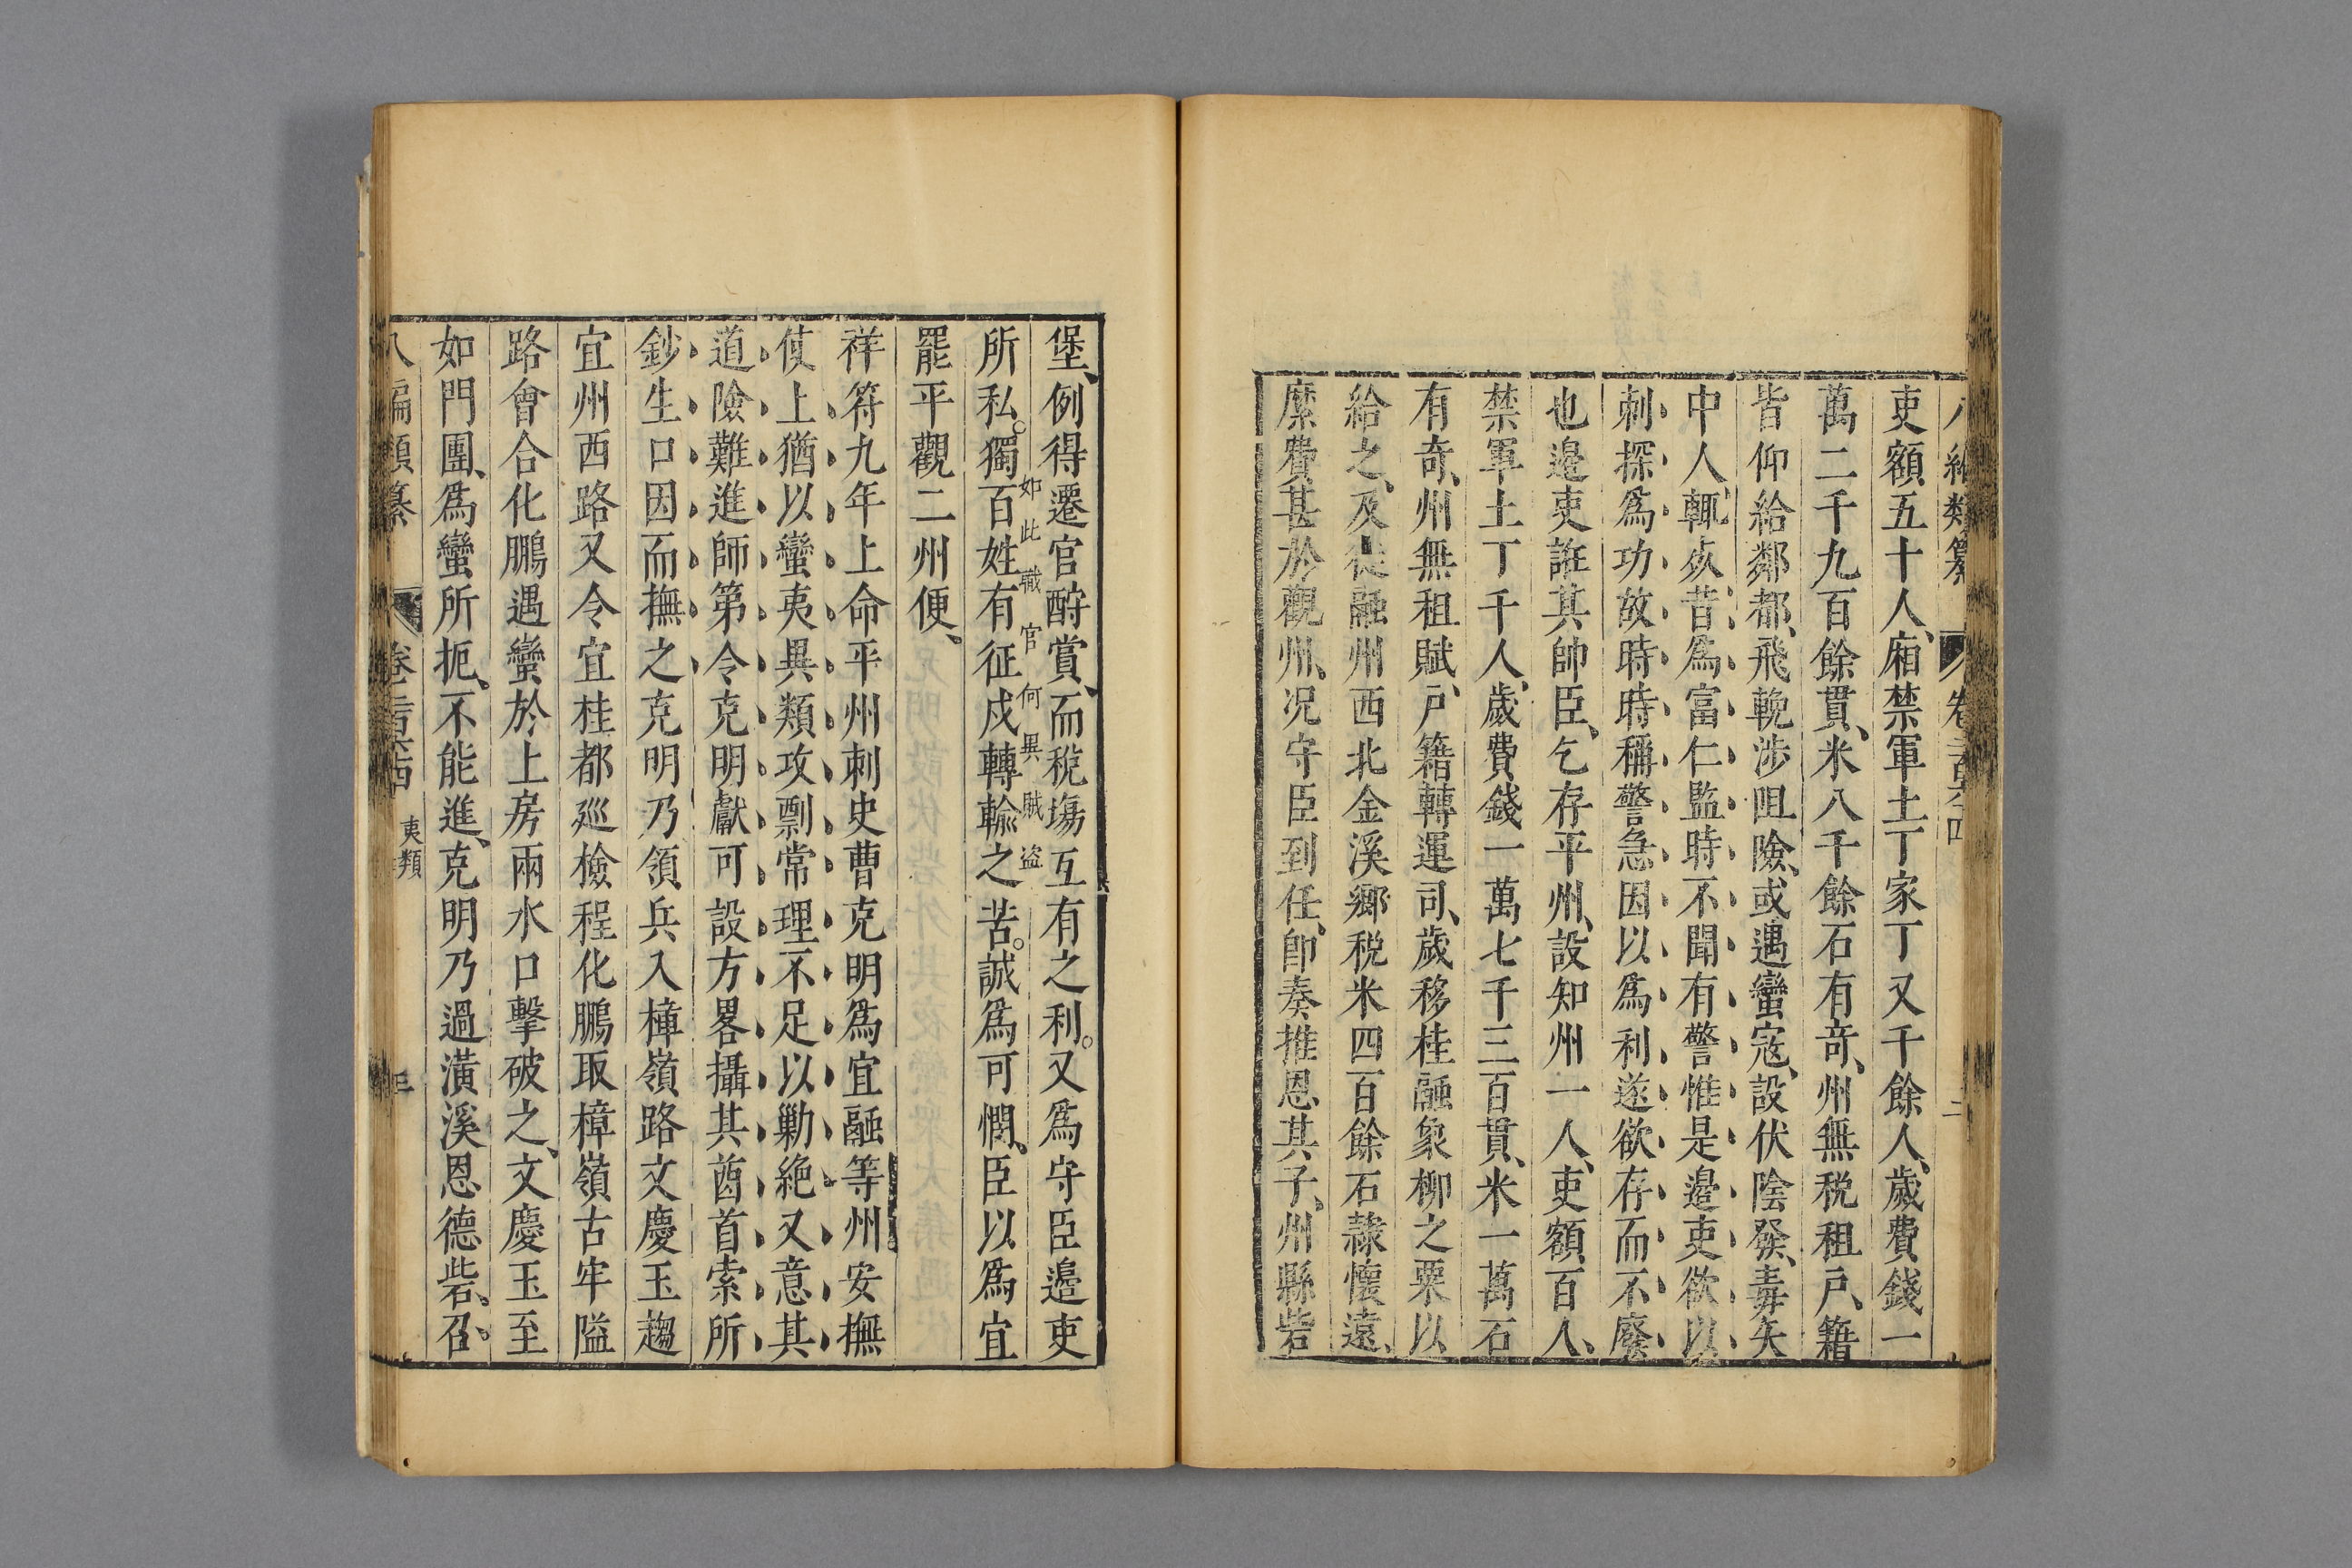 吏額五十人、廂禁軍土丁家丁又千餘人、歲費錢一
萬二千九百餘貫、米八千餘石有竒、州無税租戶、籍
皆仰給鄰都、飛輓涉阻險、或遇蠻寇、設伏陰發、毒矢
中人輒炊昔為富仁監時不聞有警惟是邉吏欲以
刺探爲功故時時稱警急因以爲利遂欲存而不廢
也邉吏誑其帥臣、乞存平州、設知州一人、吏額百人、
禁軍土丁千人、歲費錢一萬七千三百貫、米一萬石
有竒、州無租賦、戶籍轉運司、歲移桂融象柳之粟以
給之、及徙融州西北金溪鄉税米四百餘石隷懷遠、
糜費甚於觀州、况守臣到任、卽奏推恩其子、州縣砦
堡、例得遷官酧賞、而稅塲互有之利。又爲守臣邉吏
所私。獨百姓有征戍轉輸之苦。誠爲可憫、臣以爲宜
如此職官何異賊盗
罷平觀二州便、
祥符九年上命平州刺史曹克明爲宜融等州安撫
使上猶以蠻夷異類攻剽常理不足以勦絶又意其
道險難進師第令克明獻可設方畧攝其酋首索所
鈔生口因而撫之克明乃領兵入樟嶺路文慶玉趨
宜州西路又令宜桂都巡檢程化鵬取樟嶺古牢隘
路會合化鵬遇蠻於上房兩水口擊破之、文慶玉至
如門團、爲蠻所扼、不能進、克明乃過潢溪恩德砦、召、
八編類纂 夷類 三